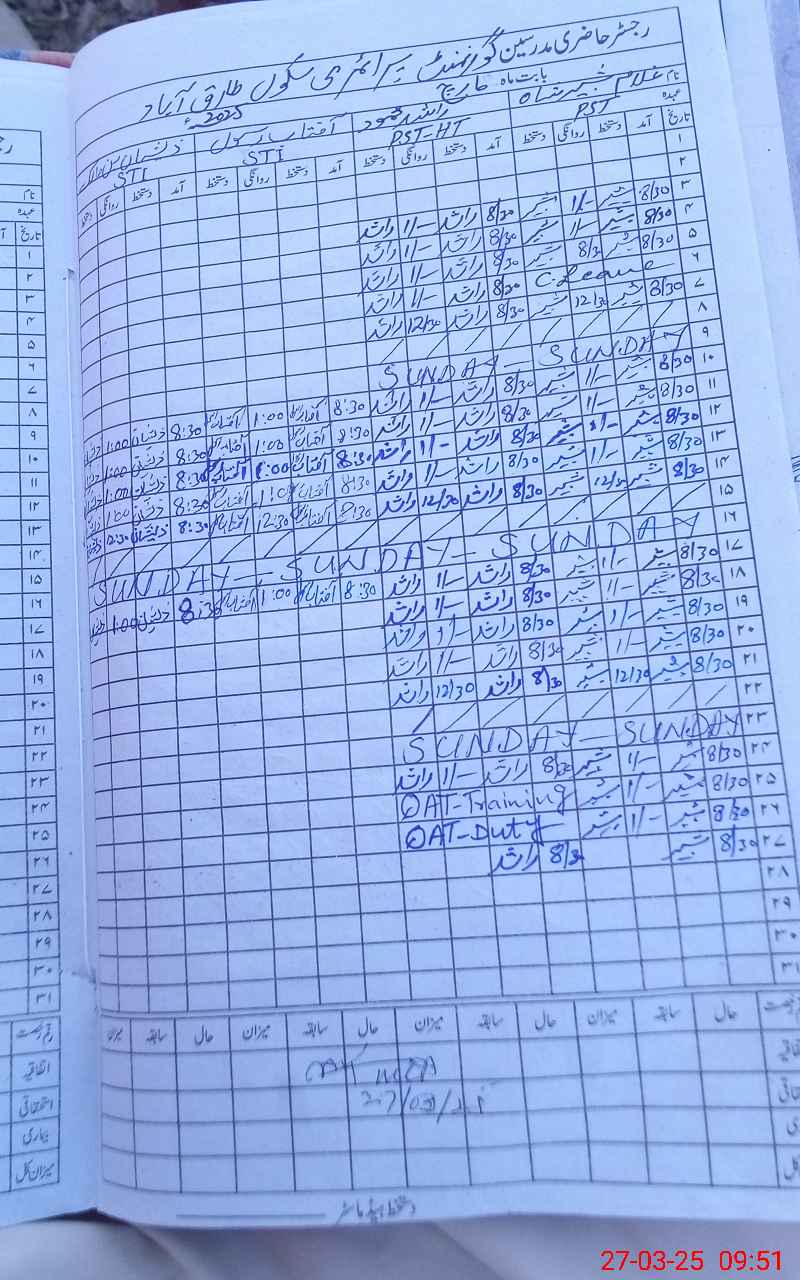 رجسٹر حاضری مدرسین گورنمنٹ پرائمری سکول طارق آباد
بابت ماہ مارچ 2025ء
نام غلام شبیر شاہ راشد محمود آفتاب رسول ذیشان
عہدہ PST PST-HT STI STI
تاریخ آمد دستخط روانگی دستخط آمد دستخط روانگی دستخط آمد دستخط روانگی دستخط آمد دستخط روانگی دستخط
۱
۲
۳ 8/30 شبیر 1/- شبیر 8/30 راشد 1/- راشد
۴ 8/30 شبیر 1/- شبیر 8/30 راشد 1/- راشد
۵ 8/30 شبیر 8/30 شبیر 8/30 راشد 1/- راشد
۶ C-Leave 8/30 راشد 1/- راشد
۷ 8/30 شبیر 12/30 شبیر 8/30 راشد 12/30 راشد
۸
۹ SUNDAY - SUNDAY
۱۰ 8/30 شبیر 1/- شبیر 8/30 راشد 1/- راشد 8:30 آفتاب 1:00 آفتاب 8:30 ذیشان 1:00 ذیشان
۱۱ 8/30 شبیر 1/- شبیر 8/30 راشد 1/- راشد 8:30 آفتاب 1:00 آفتاب 8:30 ذیشان 1:00 ذیشان
۱۲ 8/30 شبیر 1/- شبیر 8/30 راشد 1/- راشد 8:30 آفتاب 1:00 آفتاب 8:30 ذیشان 1:00 ذیشان
۱۳ 8/30 شبیر 1/- شبیر 8/30 راشد 1/- راشد 8:30 آفتاب 1:00 آفتاب 8:30 ذیشان 1:00 ذیشان
۱۴ 8/30 شبیر 12/30 شبیر 8/30 راشد 12/30 راشد 8:30 آفتاب 12:30 آفتاب 8:30 ذیشان 12:30 ذیشان
۱۵
۱۶ SUNDAY - SUNDAY - SUNDAY
۱۷ 8/30 شبیر 1/- شبیر 8/30 راشد 1/- راشد 8:30 آفتاب 1:00 آفتاب 8:30 ذیشان 1:00 ذیشان
۱۸ 8/30 شبیر 1/- شبیر 8/30 راشد 1/- راشد
۱۹ 8/30 شبیر 1/- شبیر 8/30 راشد 1/- راشد
۲۰ 8/30 شبیر 1/- شبیر 8/30 راشد 1/- راشد
۲۱ 8/30 شبیر 12/30 شبیر 8/30 راشد 12/30 راشد
۲۲
۲۳ SUNDAY - SUNDAY
۲۴ 8/30 شبیر 1/- شبیر 8/30 راشد 1/- راشد
۲۵ 8/30 شبیر 1/- شبیر QAT-Training
۲۶ 8/30 شبیر 1/- شبیر QAT-Duty
۲۷ 8/30 شبیر 8/30 راشد
۲۸
۲۹
۳۰
۳۱
سابقہ حال میزان سابقہ حال میزان سابقہ حال میزان سابقہ میزان
27/03/25
دستخط ہیڈ ماسٹر
نام
عہدہ
تاریخ
۱
۲
۳
۴
۵
۶
۷
۸
۹
۱۰
۱۱
۱۲
۱۳
۱۴
۱۵
۱۶
۱۷
۱۸
۱۹
۲۰
۲۱
۲۲
۲۳
۲۴
۲۵
۲۶
۲۷
۲۸
۲۹
۳۰
۳۱
رقم رخصت
اتفاقیہ
استحقاقی
بیماری
میزان کل
27-03-25 09:51